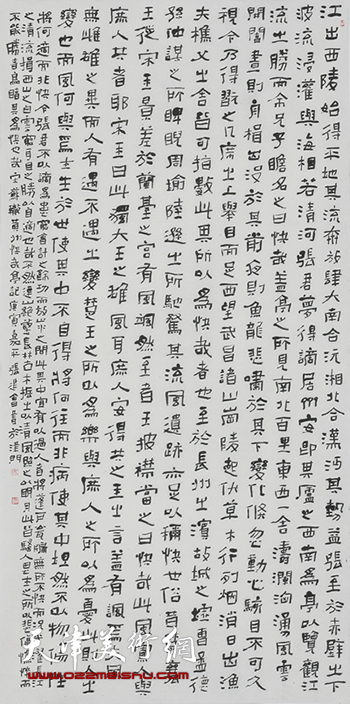 江出西陵始得平地其流奔放肆大南合沅湘北合漢沔其勢益張至於赤壁之下
波流浸灌與海相若清河張君夢得謫居齊安即其廬之西南為亭以覽觀江
流之勝而余兄子瞻名之曰快哉蓋亭之所見南北百里東西一舍濤瀾洶湧風雲
開闔晝則舟楫出沒於其前夜則魚龍悲嘯於其下變化倏忽動心駭目不可久
視今乃得翫之几席之上舉目而足西望武昌諸山岡陵起伏草木行列煙消日出漁
夫樵父之舍皆可指數此其所以為快哉者也至於長洲之濱故城之墟曹孟德
孫仲謀之所睥睨周瑜陸遜之所馳騖其流風遺跡亦足以稱快世俗昔楚襄
王從宋玉景差於蘭臺之宮有風颯然至者王披襟當之曰快哉此風寡人所與
庶人共者耶宋玉曰此獨大王之雄風耳庶人安得共之玉之言蓋有諷焉夫風
無雌雄之異而人有遇不遇之變楚王之所以為樂與庶人之所以為憂此則人之
變也而風何與焉士生於世使其中不自得將何往而非病使其中坦然不以物傷性
將何適而非快今張君不以謫為患竊會計之餘功而自放山水之間此其中宜有以過人者將蓬戶甕牖無所不快而況乎濯長江
之清流揖西山之白雲窮耳目之勝以自適也哉不然連山絕壑長林古木振之以清風照之以明月此皆騷人思士之所以悲傷憔悴而
不能勝者烏睹其為快也哉宋蘇轍黃州快哉亭記庚寅張建會書於津門
天津美術網
www.022meishu.com